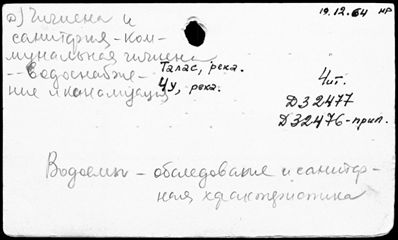 а) Гигиена и
санитария - ком-
мунальная гигиена
-- водоснабже-
ние и канализация
19.12.64 нр
Талас, река.
Чу, река.
Чит.
Д32477
Д32476-прил.
Водоемы - обследование и санитар-
ная характеристика